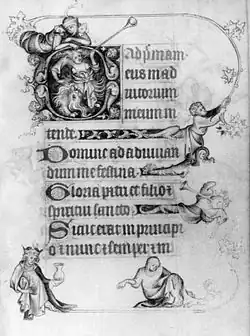 ad p̄mam
eus in ad
iutorium
meum in
tende
Domine ad adiuuan
dum me festina
Gloria patri et filio ⁊
spiritui sancto
Sicut erat in principi
o ⁊ nunc ⁊ semper ⁊ in